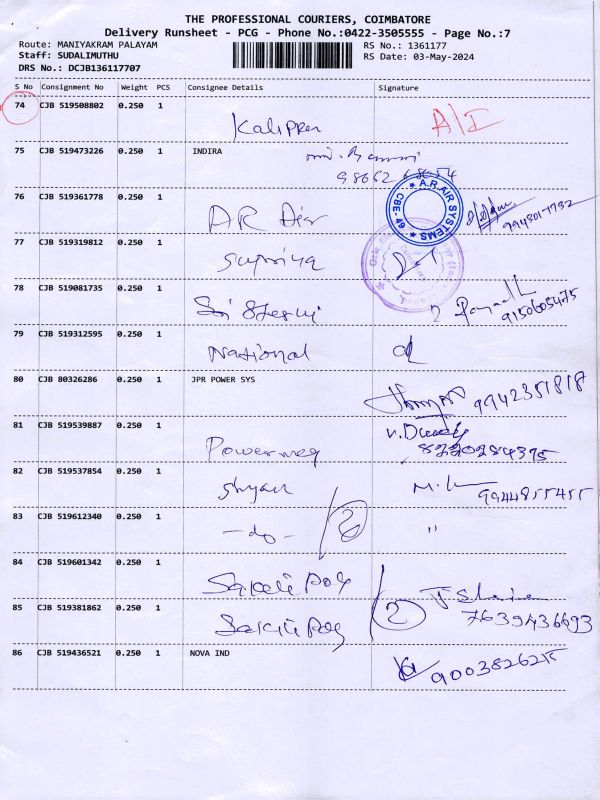 THE PROFESSIONAL COURIERS, COIMBATORE
Delivery Runsheet - PCG - Phone No.:0422-3505555 - Page No.:7
Route: MANIYAKRAM PALAYAM RS No.: 1361177
Staff: SUDALIMUTHU RS Date: 03-May-2024
DRS No.: DCJB136117707
S No Consignment No Weight PCS Consignee Details Signature
74 CJB 519508802 0.250 1
A/I
75 CJB 519473226 0.250 1 INDIRA
76 CJB 519361778 0.250 1
AR Air
A.R.AIR SYSTEMS CBE-49
77 CJB 519319812 0.250 1
Supriya
78 CJB 519081735 0.250 1
9150605475
79 CJB 519312595 0.250 1
National
80 CJB 80326286 0.250 1 JPR POWER SYS
9942351818
81 CJB 519539887 0.250 1
Powermeg
8220284375
82 CJB 519537854 0.250 1
9944855455
83 CJB 519612340 0.250 1
-do- 2 "
84 CJB 519601342 0.250 1
85 CJB 519381862 0.250 1
2 7639436693
86 CJB 519436521 0.250 1 NOVA IND
9003826215